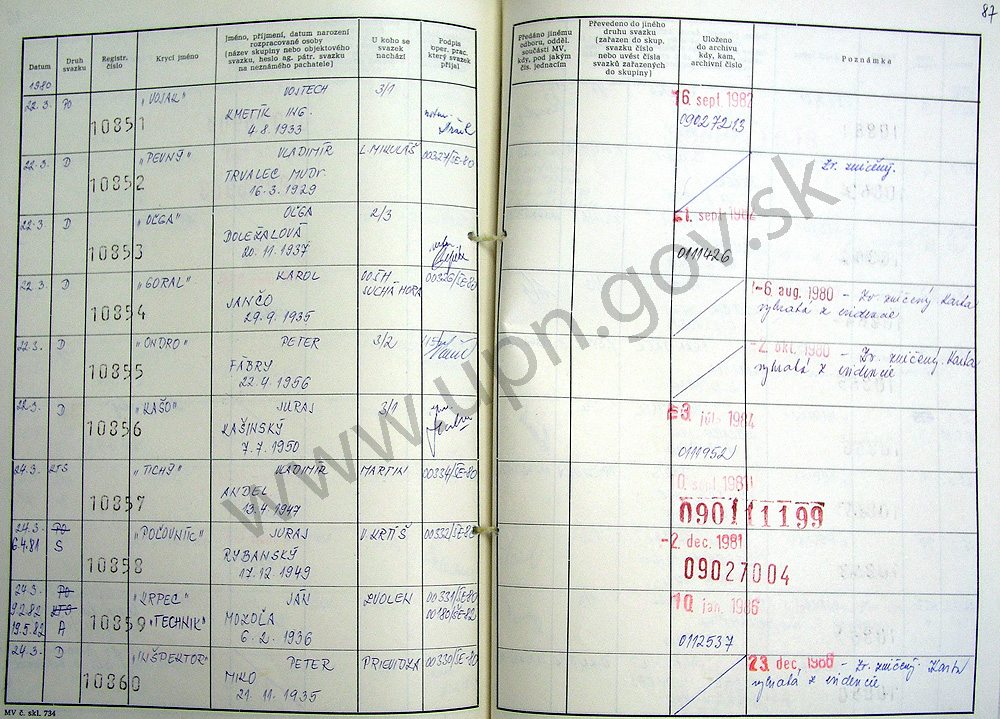 87
Datum
Druh svazku
Registr. číslo
Krycí jméno
Jméno, příjmení, datum narození
rozpracované osoby
(název skupiny nebo objektového
svazku, heslo ag. pátr. svazku
na neznámého pachatele)
U koho se
svazek
nachází
Podpis
oper. prac.
který svazek
přijal
Předáno jinému
odboru, odděl.
součásti MV,
kdy, pod jakým
čís. jednacím
Převedeno do jiného
druhu svazku
(zařazen do skup.
svazku číslo
nebo uvést čísla
svazků zařazených
do skupiny)
Uloženo
do archivu
kdy, kam,
archivní číslo
Poznámka
1980
22.3. PO 10851 "VOJAK" VOJTECH 3/1 16. sept. 1982
KMETÍK ING.
4.8.1933
09027213
22.3. D 10852 "PEVNÝ" VLADIMÍR L. MIKULÁŠ 00327/SE-80 Zv. zničený.
TRVALEC MUDr.
16.3.1929
22.3 D 10853 "OĽGA" OĽGA 2/3
DOLEŽALOVÁ
20.11.1937
0111426
22.3. D 10854 "GORAL" KAROL OO. ŠTH 00326/SE-80
SUCHÁ HORA
JANČO
29.9.1935
-6. aug. 1980 - Zv. zničený Karta
vybratá z evidencie
22.3. D 10855 "ONDRO" PETER 3/2
FÁBRY
22.4.1956
-2. okt. 1980 - Zv. zničený. Karta
vybratá z evidencie
22.3. D 10856 "KAŠO" JURAJ 3/1
KAŠINSKÝ
7.7.1950
0111952
24.3. KTS 10857 "TICHÝ" VLADIMÍR MARTIN 00334/SE-80
ANDEL
13.4.1947
090111199
24.3. PO 10858 "POĽOVNÍC" JURAJ V. KRTÍŠ 00332/SE-80 -2. dec. 1981
6.4.81 S
RYBANSKÝ
17.12.1949
09027004
24.3. PO 10859 "KRPEC" JÁN ZVOLEN 00331/SE-80 10. jan. 1986
9.2.82 KTS 00180/SE-82
19.5.82 A "TECHNIK" MOKOĽA
6.2.1936
0112537
24.3. D 10860 "INŠPEKTOR" PETER PRIEVIDZA 00330/SE-80
MIKO
21.11.1935
23. dec. 1980 - Zv. zničený. Karta
vybratá z evidencie
MV č. skl. 734
www.upn.gov.sk